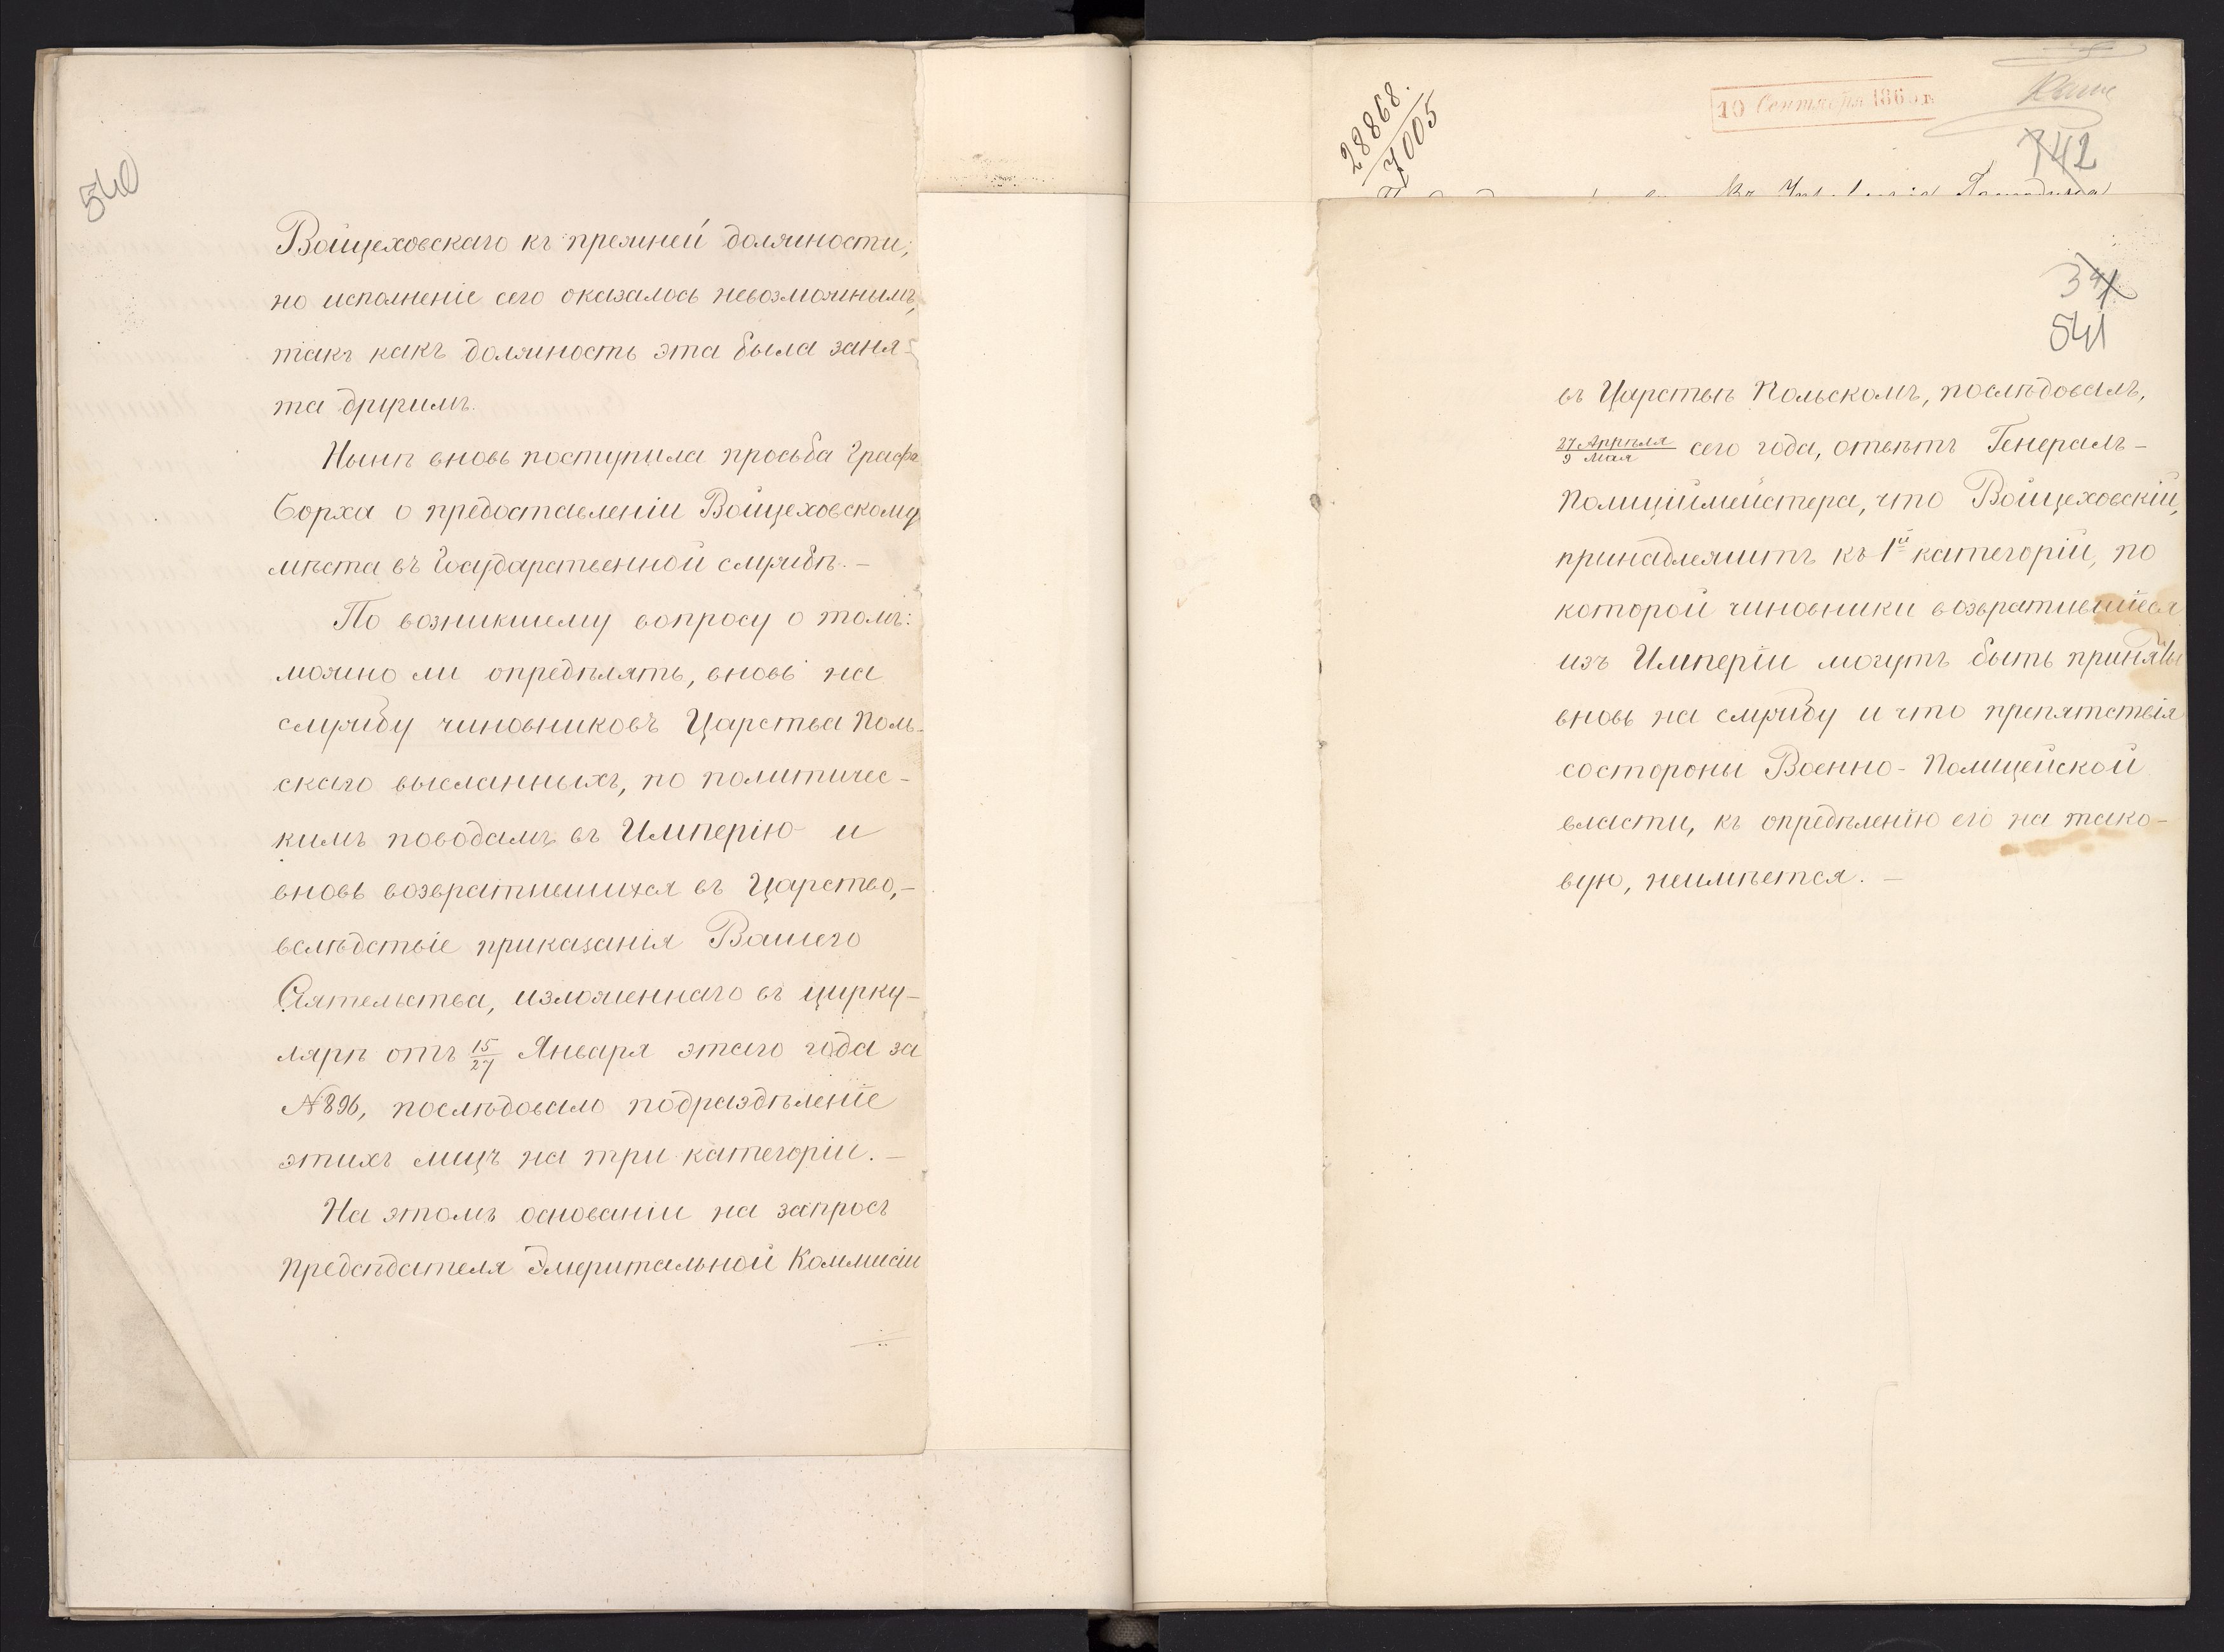 540
Войцеховскаго къ прежней должности,
но исполненіе сего оказалось невозможнымъ,
такъ какъ должность эта была заня-
та другимъ.
Нынѣ вновь поступила просьба Графа
Борха о предоставленіи Войцеховскому
мѣста въ Государственной службѣ. –
По возникшему вопросу о томъ:
можно ли опредѣлять, вновь на
службу чиновниковъ Царства Поль-
скаго высланныхъ, по политичес-
кимъ поводамъ въ Имперію и
вновь возвратившихся въ Царство, –
вслѣдствіе приказанія Вашего
Сіятельства, изложеннаго въ цирку-
лярѣ отъ 15/27 Января этаго года за
№ 896, послѣдовало подраздѣленіе
этихъ лицъ на три категоріи. –
На этомъ основаніи на запросъ
Предсѣдателя Эмеритальной Коммисіи
28868.
7005
10 Сентября 186
742
341
541
въ Царствѣ Польскомъ, послѣдовалъ,
27 Апрѣля/9 Мая сего года, отвѣтъ Генералъ-
Полиціймейстера, что Войцеховскій,
принадлежитъ къ 1й категоріи, по
которой чиновники возвратившіеся
изъ Имперіи могутъ быть приняты
вновь на службу и что препятствія
состороны Военно-Полицейской
власти, къ опредѣленію его на тако-
вую, неимѣется. –